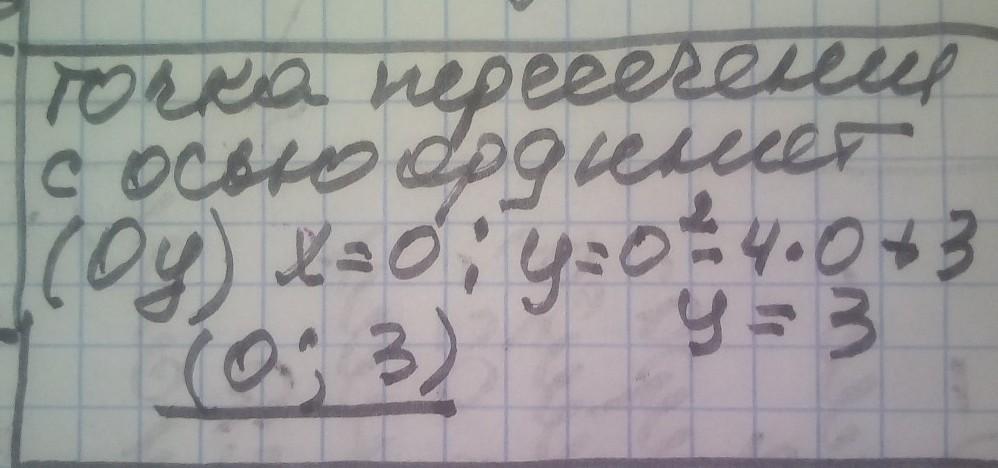 точка пересечения
с осью ординат
(Oy) x=0; y=0²-4·0+3
y=3
(0; 3)